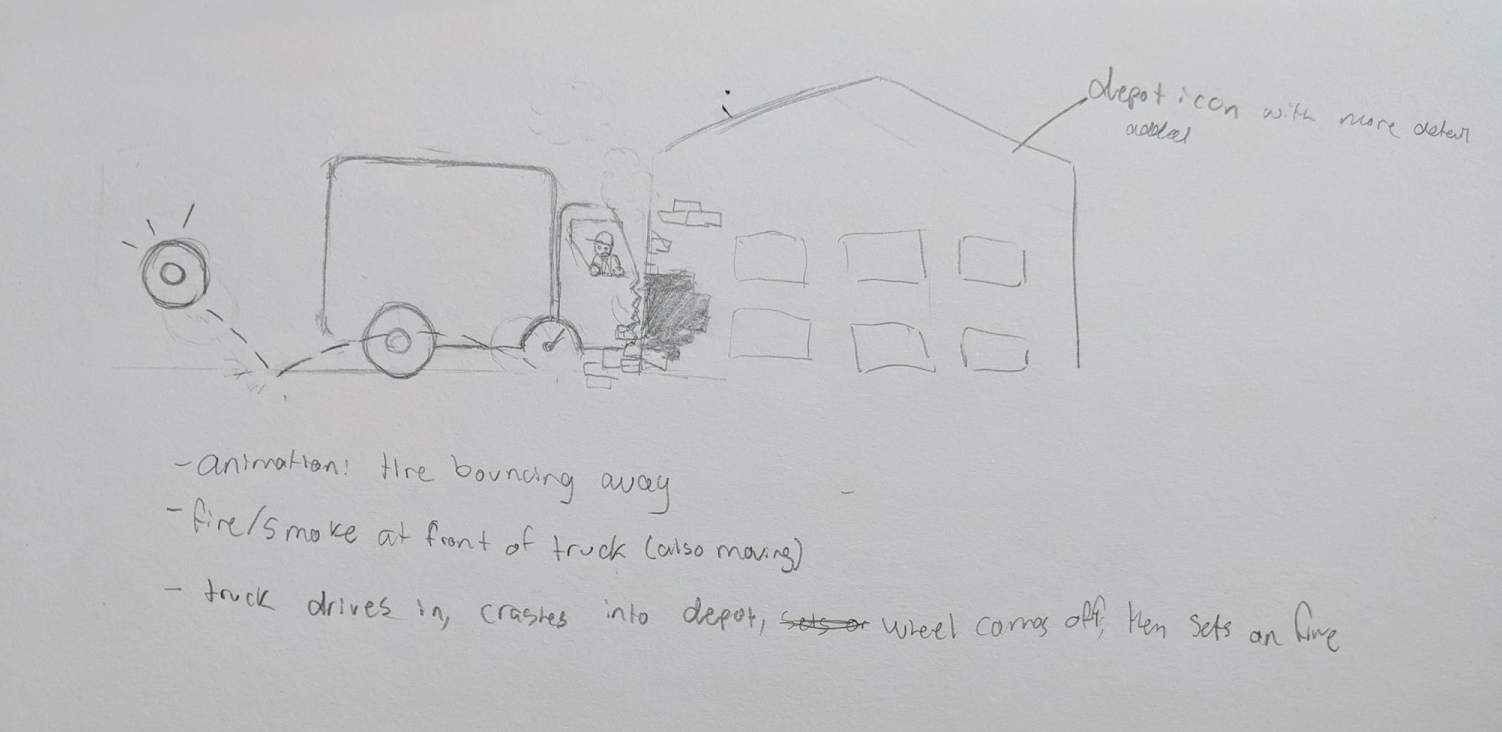 depot icon with more detail
added
- animation: tire bouncing away
- fire/smoke at front of truck (also moving)
- truck drives in, crashes into depot, sets on wheel comes off, then sets on fire